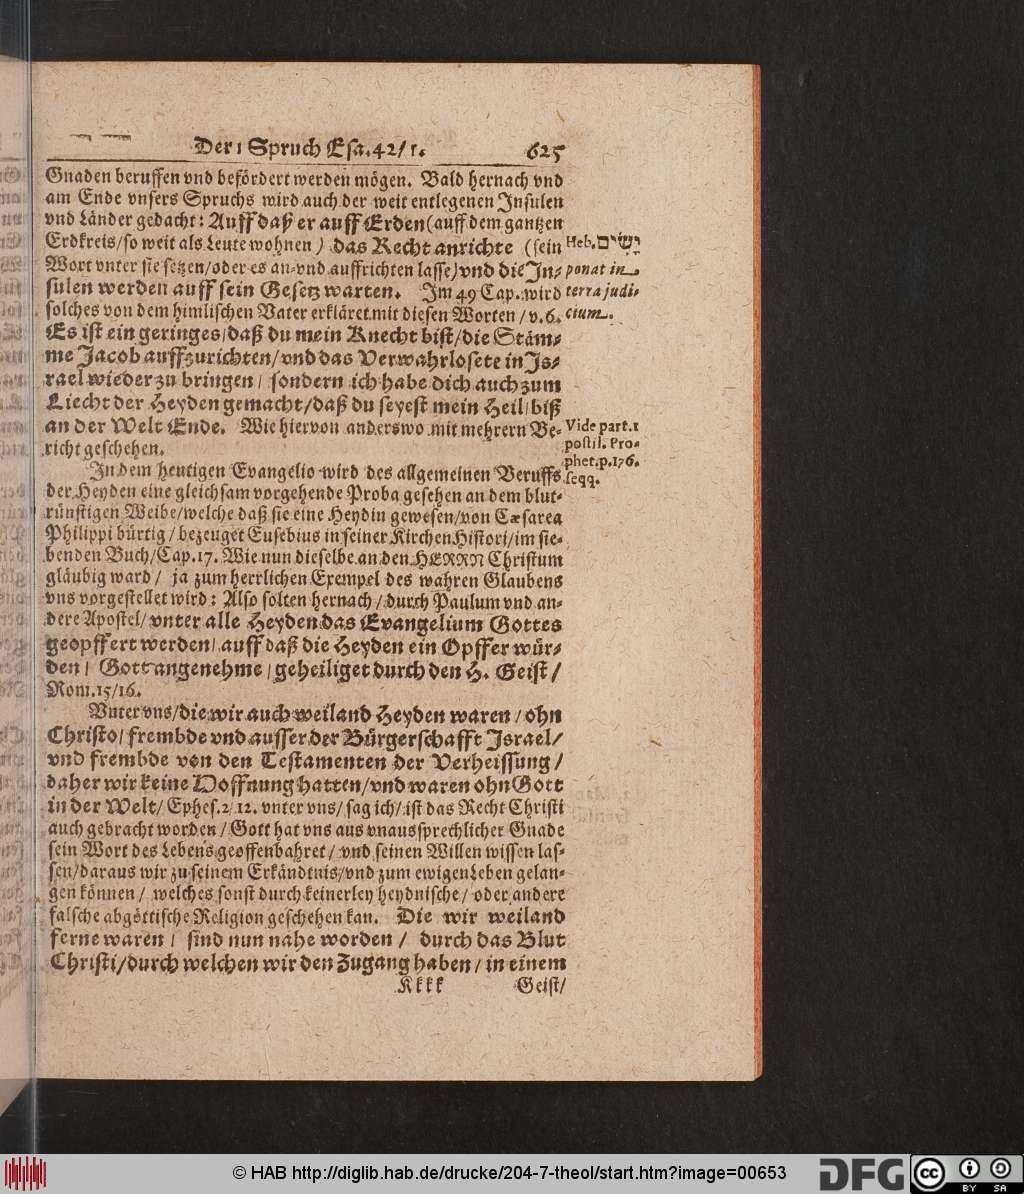 Der 1 Spruch Esa. 42/1. 625
Gnaden beruffen vnd befördert werden mögen. Bald hernach vnd
am Ende vnsers Spruchs wird auch der weit entlegenen Insulen
vnd Länder gedacht: Auff daß er auff Erden (auff dem gantzen
Erdkreis/so weit als Leute wohnen) das Recht anrichte (sein
Wort vnter sie setzen/oder es an-vnd auffrichten lasse) vnd die In-
sulen werden auff sein Gesetz warten. Im 49 Cap. wird
solches von dem himlischen Vater erkläret mit diesen Worten/v. 6.
Es ist ein geringes/daß du mein Knecht bist/die Stäm-
me Jacob auffzurichten/vnd das Verwahrlosete in Is-
rael wieder zu bringen/ sondern ich habe dich auch zum
Liecht der Heyden gemacht/daß du seyest mein Heil/biß
an der Welt Ende. Wie hiervon anderswo mit mehrern Be-
richt geschehen.
In dem heutigen Evangelio wird des allgemeinen Beruffs
der Heyden eine gleichsam vorgehende Proba gesehen an dem blut-
rünstigen Weibe/welche daß sie eine Heydin gewesen/von Cæsarea
Philippi bürtig/bezeuget Eusebius in seiner Kirchen Histori/im sie-
benden Buch/Cap. 17. Wie nun dieselbe an den HERRN Christum
gläubig ward/ ja zum herrlichen Exempel des wahren Glaubens
vns vorgestellet wird: Also solten hernach/durch Paulum vnd an-
dere Apostel/vnter alle Heyden das Evangelium Gottes
geopffert werden/auff daß die Heyden ein Opffer wür-
den/ Gott angenehme/geheiliget durch den H. Geist/
Rom. 15/16.
Vnter vns/die wir auch weiland Heyden waren/ohn
Christo/frembde vnd ausser der Bürgerschafft Israel/
vnd frembde von den Testamenten der Verheissung/
daher wir keine Hoffnung hatten/vnd waren ohn Gott
in der Welt/Ephes. 2/12. vnter vns/sag ich/ist das Recht Christi
auch gebracht worden/Gott hat vns aus vnaussprechlicher Gnade
sein Wort des Lebens geoffenbahret/vnd seinen Willen wissen las-
sen/daraus wir zu seinem Erkändtnis/vnd zum ewigen Leben gelan-
gen können/ welches sonst durch keinerley heydnische/oder andere
falsche abgöttische Religion geschehen kan. Die wir weiland
ferne waren/ sind nun nahe worden/ durch das Blut
Christi/durch welchen wir den Zugang haben/in einem
Kkkk Geist/
Heb. יָשִׂים
ponat in
terra judi-
cium.
Vide part. 1
postil. Pro-
phet. p. 176.
seqq.
© HAB http://diglib.hab.de/drucke/204-7-theol/start.htm?image=00653
DFG
cc BY SA